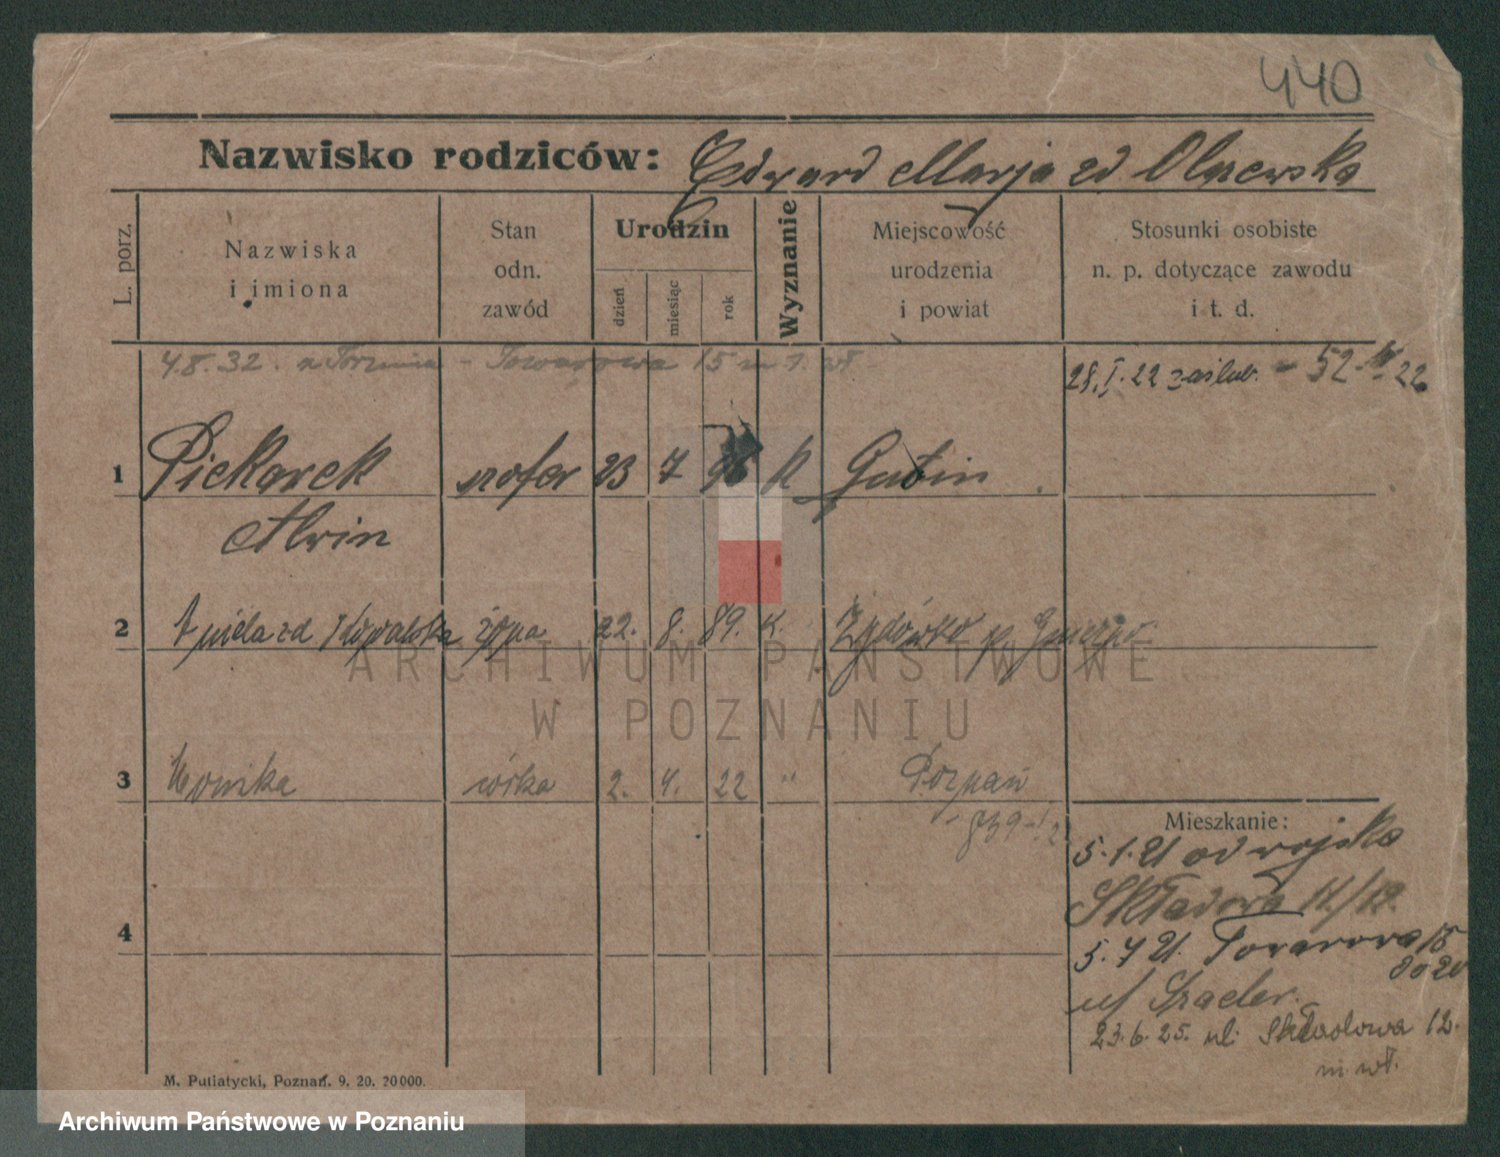 440
Nazwisko rodziców: Edward Marja zd Olszewska
L. porz.
Nazwiska i imiona
Stan odn. zawód
Urodzin
dzień
miesiąc
rok
Wyznanie
Miejscowość urodzenia i powiat
Stosunki osobiste n. p. dotyczące zawodu i t. d.
4.8.32. z Torunia - Towarowa 15 m 1.
28.I.22 zaślub. - 52 - IV - 22
1 Piekarek szofer 23 7 K Gutin
Alwin
2 zd Kowalska żona 22. 8. 89. K. Żydówko p. Gniezno
ARCHIWUM PAŃSTWOWE
W POZNANIU
3 Monika córka 2. 4. 22 " Poznań
839-I 22
Mieszkanie:
5.1.21 od wojska
Składowa 11/12.
4
5.7 21. Towarowa 15
u/ Szader.
23.6.25. ul. Składowa 12.
m. wł.
M. Putiatycki, Poznań. 9. 20. 20 000.
Archiwum Państwowe w Poznaniu